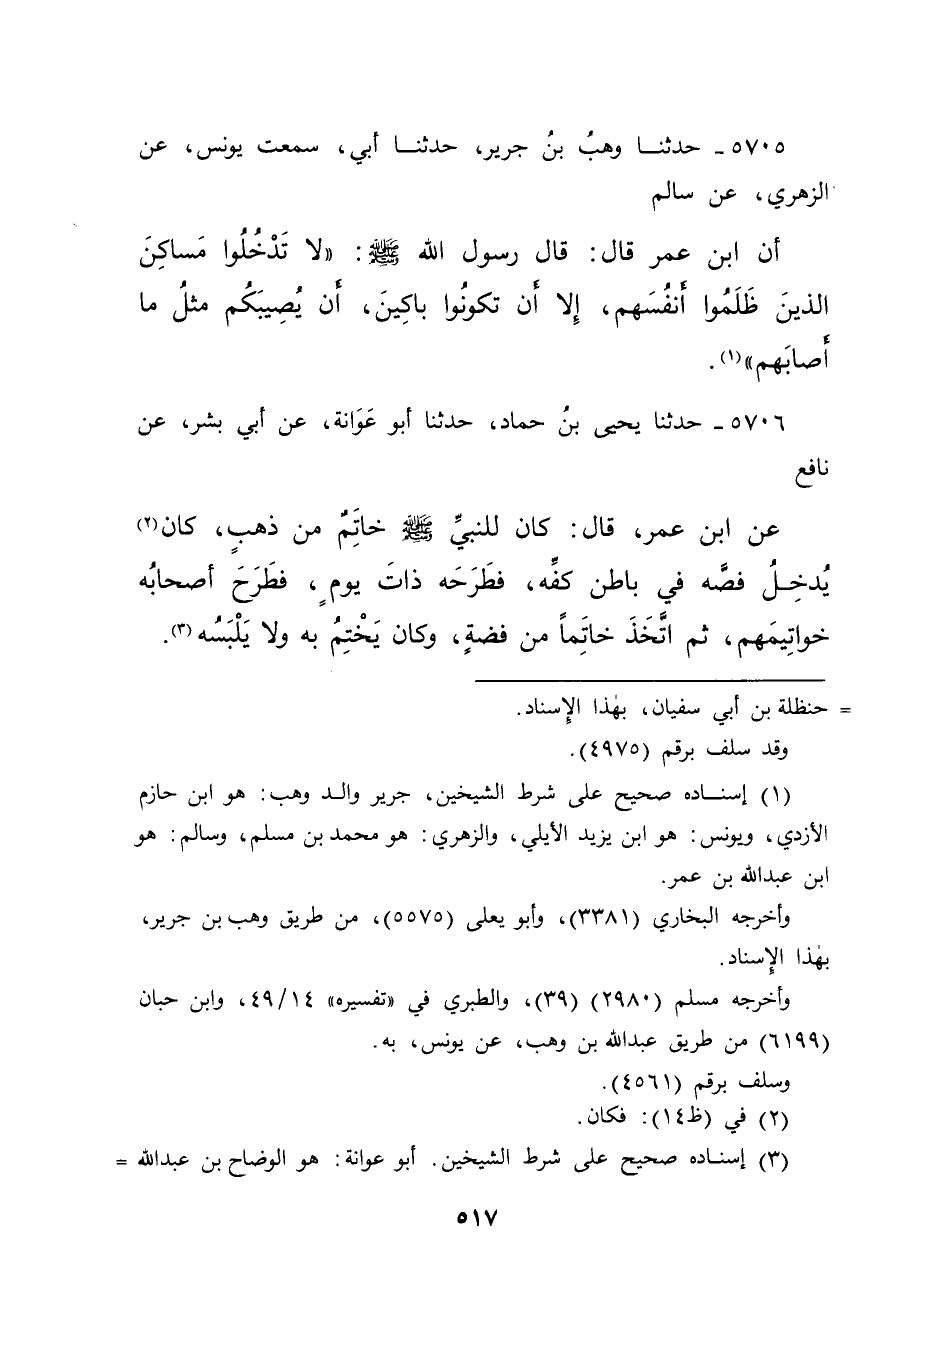 ٥٧٠٥ ـ حدثنــا وهبُ بنُ جرير، حدثنــا أبي، سمعت يونس، عن
الزهري، عن سالم
أن ابن عمر قال: قال رسول الله ﷺ: «لا تَدْخُلُوا مَساكِنَ
الذينَ ظَلَمُوا أَنفُسَهم، إِلا أَن تكونُوا باكِينَ، أَن يُصِيبَكُم مثلُ ما
أَصابَهم»(١).
٥٧٠٦ ـ حدثنا يحيى بنُ حماد، حدثنا أبو عَوَانة، عن أبي بشر، عن
نافع
عن ابن عمر، قال: كان للنبيِّ ﷺ خاتَمٌ من ذهبٍ، كان(٢)
يُدخِـلُ فصَّه في باطن كفِّه، فطَرَحَه ذاتَ يومٍ، فطَرَحَ أصحابُه
خواتِيمَهم، ثم اتَّخَذَ خاتَماً من فضةٍ، وكان يَخْتِمُ به ولا يَلْبَسُه(٣).
= حنظلة بن أبي سفيان، بهٰذا الإِسناد.
وقد سلف برقم (٤٩٧٥).
(١) إسنــاده صحيح على شرط الشيخين، جرير والـد وهب: هو ابن حازم
الأزدي، ويونس: هو ابن يزيد الأيلي، والزهري: هو محمد بن مسلم، وسالم: هو
ابن عبدالله بن عمر.
وأخرجه البخاري (٣٣٨١)، وأبو يعلى (٥٥٧٥)، من طريق وهب بن جرير،
بهٰذا الإِسناد.
وأخرجه مسلم (٢٩٨٠) (٣٩)، والطبري في «تفسيره» ٤٩/١٤، وابن حبان
(٦١٩٩) من طريق عبدالله بن وهب، عن يونس، به.
وسلف برقم (٤٥٦١).
(٢) في (ظ١٤): فكان.
(٣) إسنـاده صحيح على شرط الشيخين. أبو عوانة: هو الوضاح بن عبدالله =
٥١٧